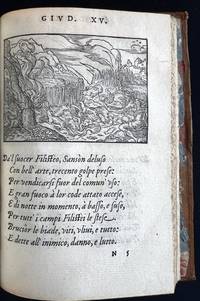 GIVD. XV.
Dal suocer Filisteo, Sansòn deluso
Con bell'arte, trecento golpe prese:
Per vendicarsi fuor del comun' vso:
E gran fuoco à lor code attato accese,
E di notte in momento, à basso, e suso,
Per tutt'i campi Filistei le stese
Bruciòr le biade, viti, vliui, e tutto:
E dette all'inimico, danno, e lutto.
N 5